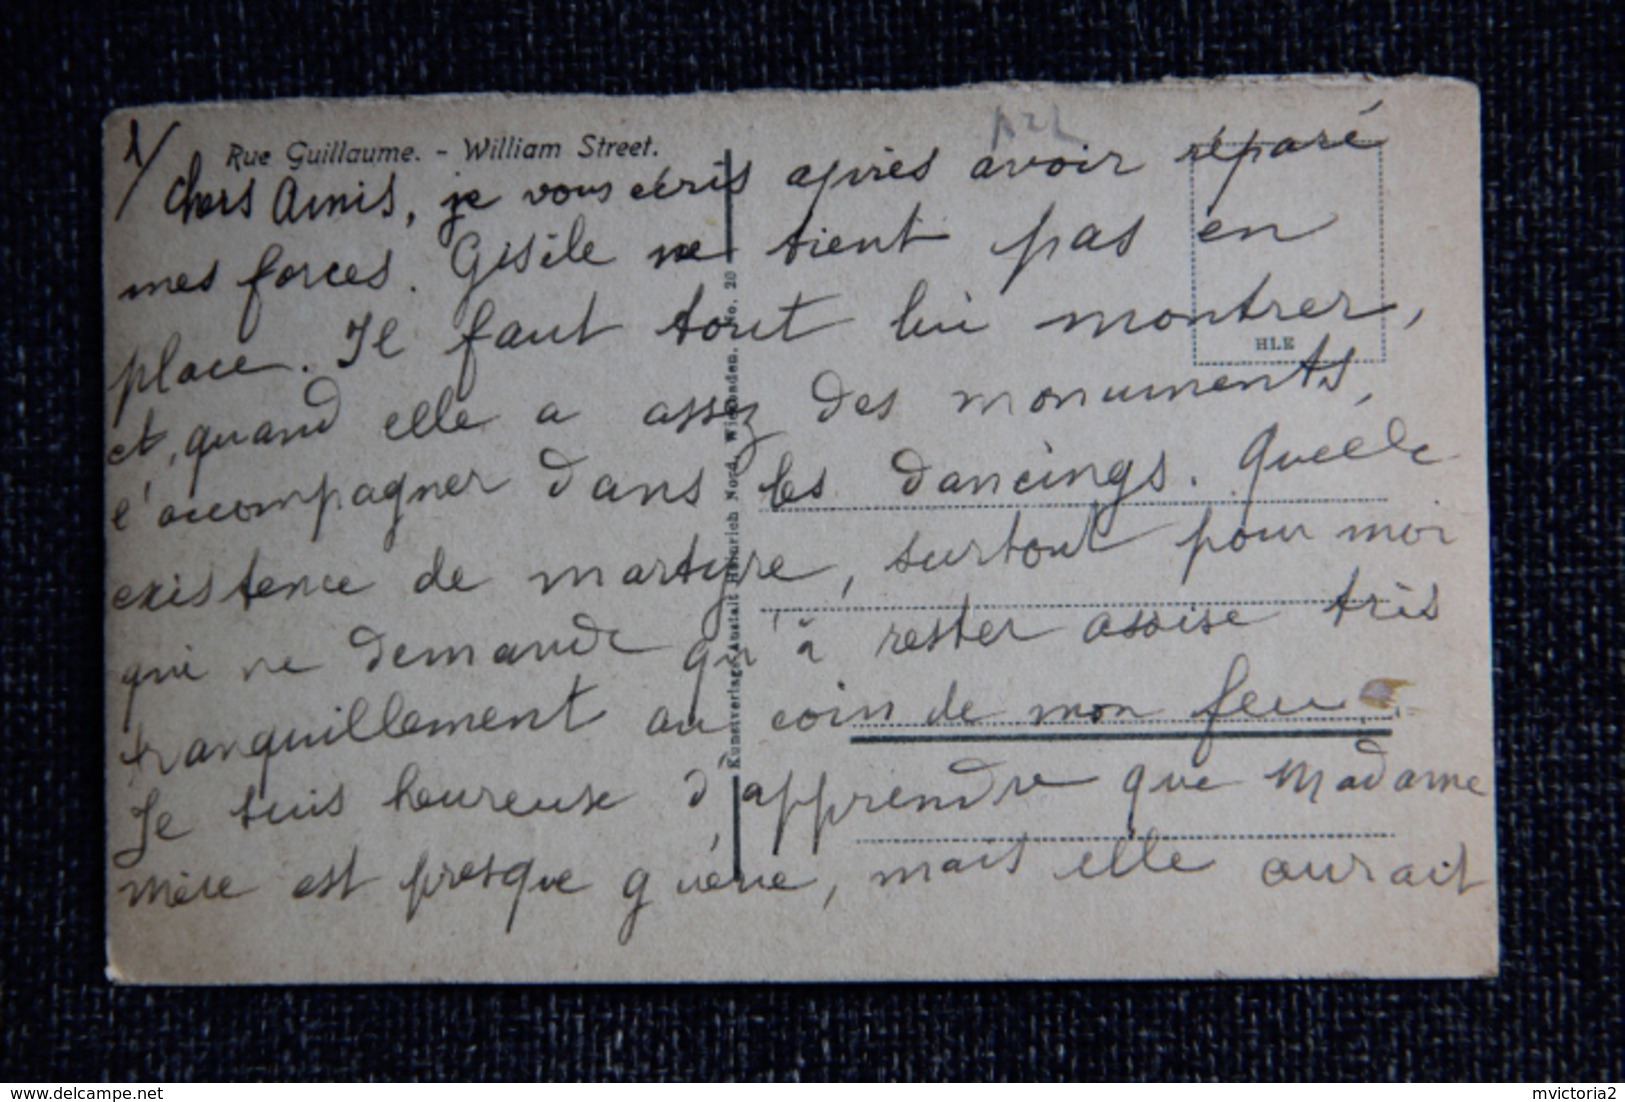 1/
Rue Guillaume. - William Street.
Chers Amis, je vous écris après avoir réparé
mes forces. Gisèle ne tient pas en
place. Il faut tout lui montrer,
et, quand elle a assez des monuments,
l'accompagner dans les dancings. Quelle
existence de martyre, surtout pour moi
qui ne demande qu'à rester assise très
tranquillement au coin de mon feu.
Je suis heureuse d'apprendre que Madame
Mère est presque guérie, mais elle aurait
Kunstverlags-Anstalt Heinrich Nord, Wiesbaden. No. 20
HLE
delcampe.net
mvictoria2